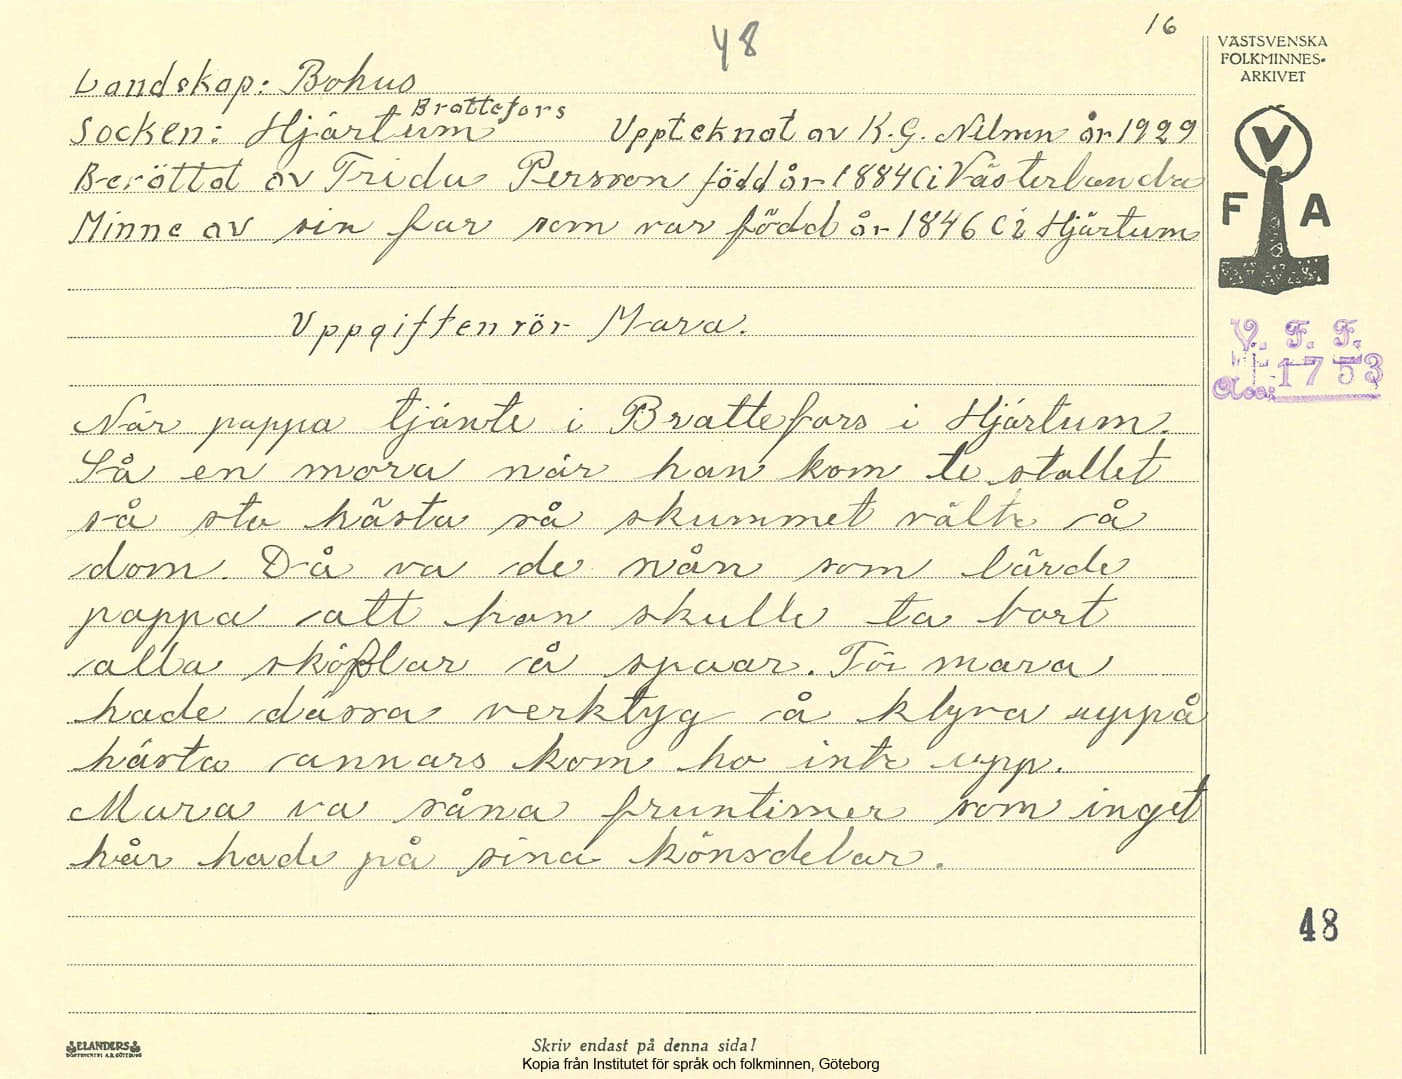 16
48
VÄSTSVENSKA
FOLKMINNES-
ARKIVET
Landskap: Bohus
Brattefors
Socken: Hjärtum Upptecknat av K.G. Nilmen år 1929
Berättat av Frida Persson född år 1884 i Västerlanda
Minne av sin far som var född år 1846 i Hjärtum
V
F A
Uppgiften rör Mara.
V. F. F.
Acc: 1753
När pappa tjänte i Brattefors i Hjärtum.
Så en mora när han kom te stallet
så sto hästa så skummet välte å
dom. Då va de nån som lärde
pappa att han skulle ta bort
alla sköflar å spaar. För mara
hade dässa verktyg å klyva uppå
hästa annars kom ho inte upp.
Mara va såna fruntimer som inget
hår hade på sina könsdelar.
48
ELANDERS
BOKTRYCKERI A.B. GÖTEBORG
Skriv endast på denna sida!
Kopia från Institutet för språk och folkminnen, Göteborg